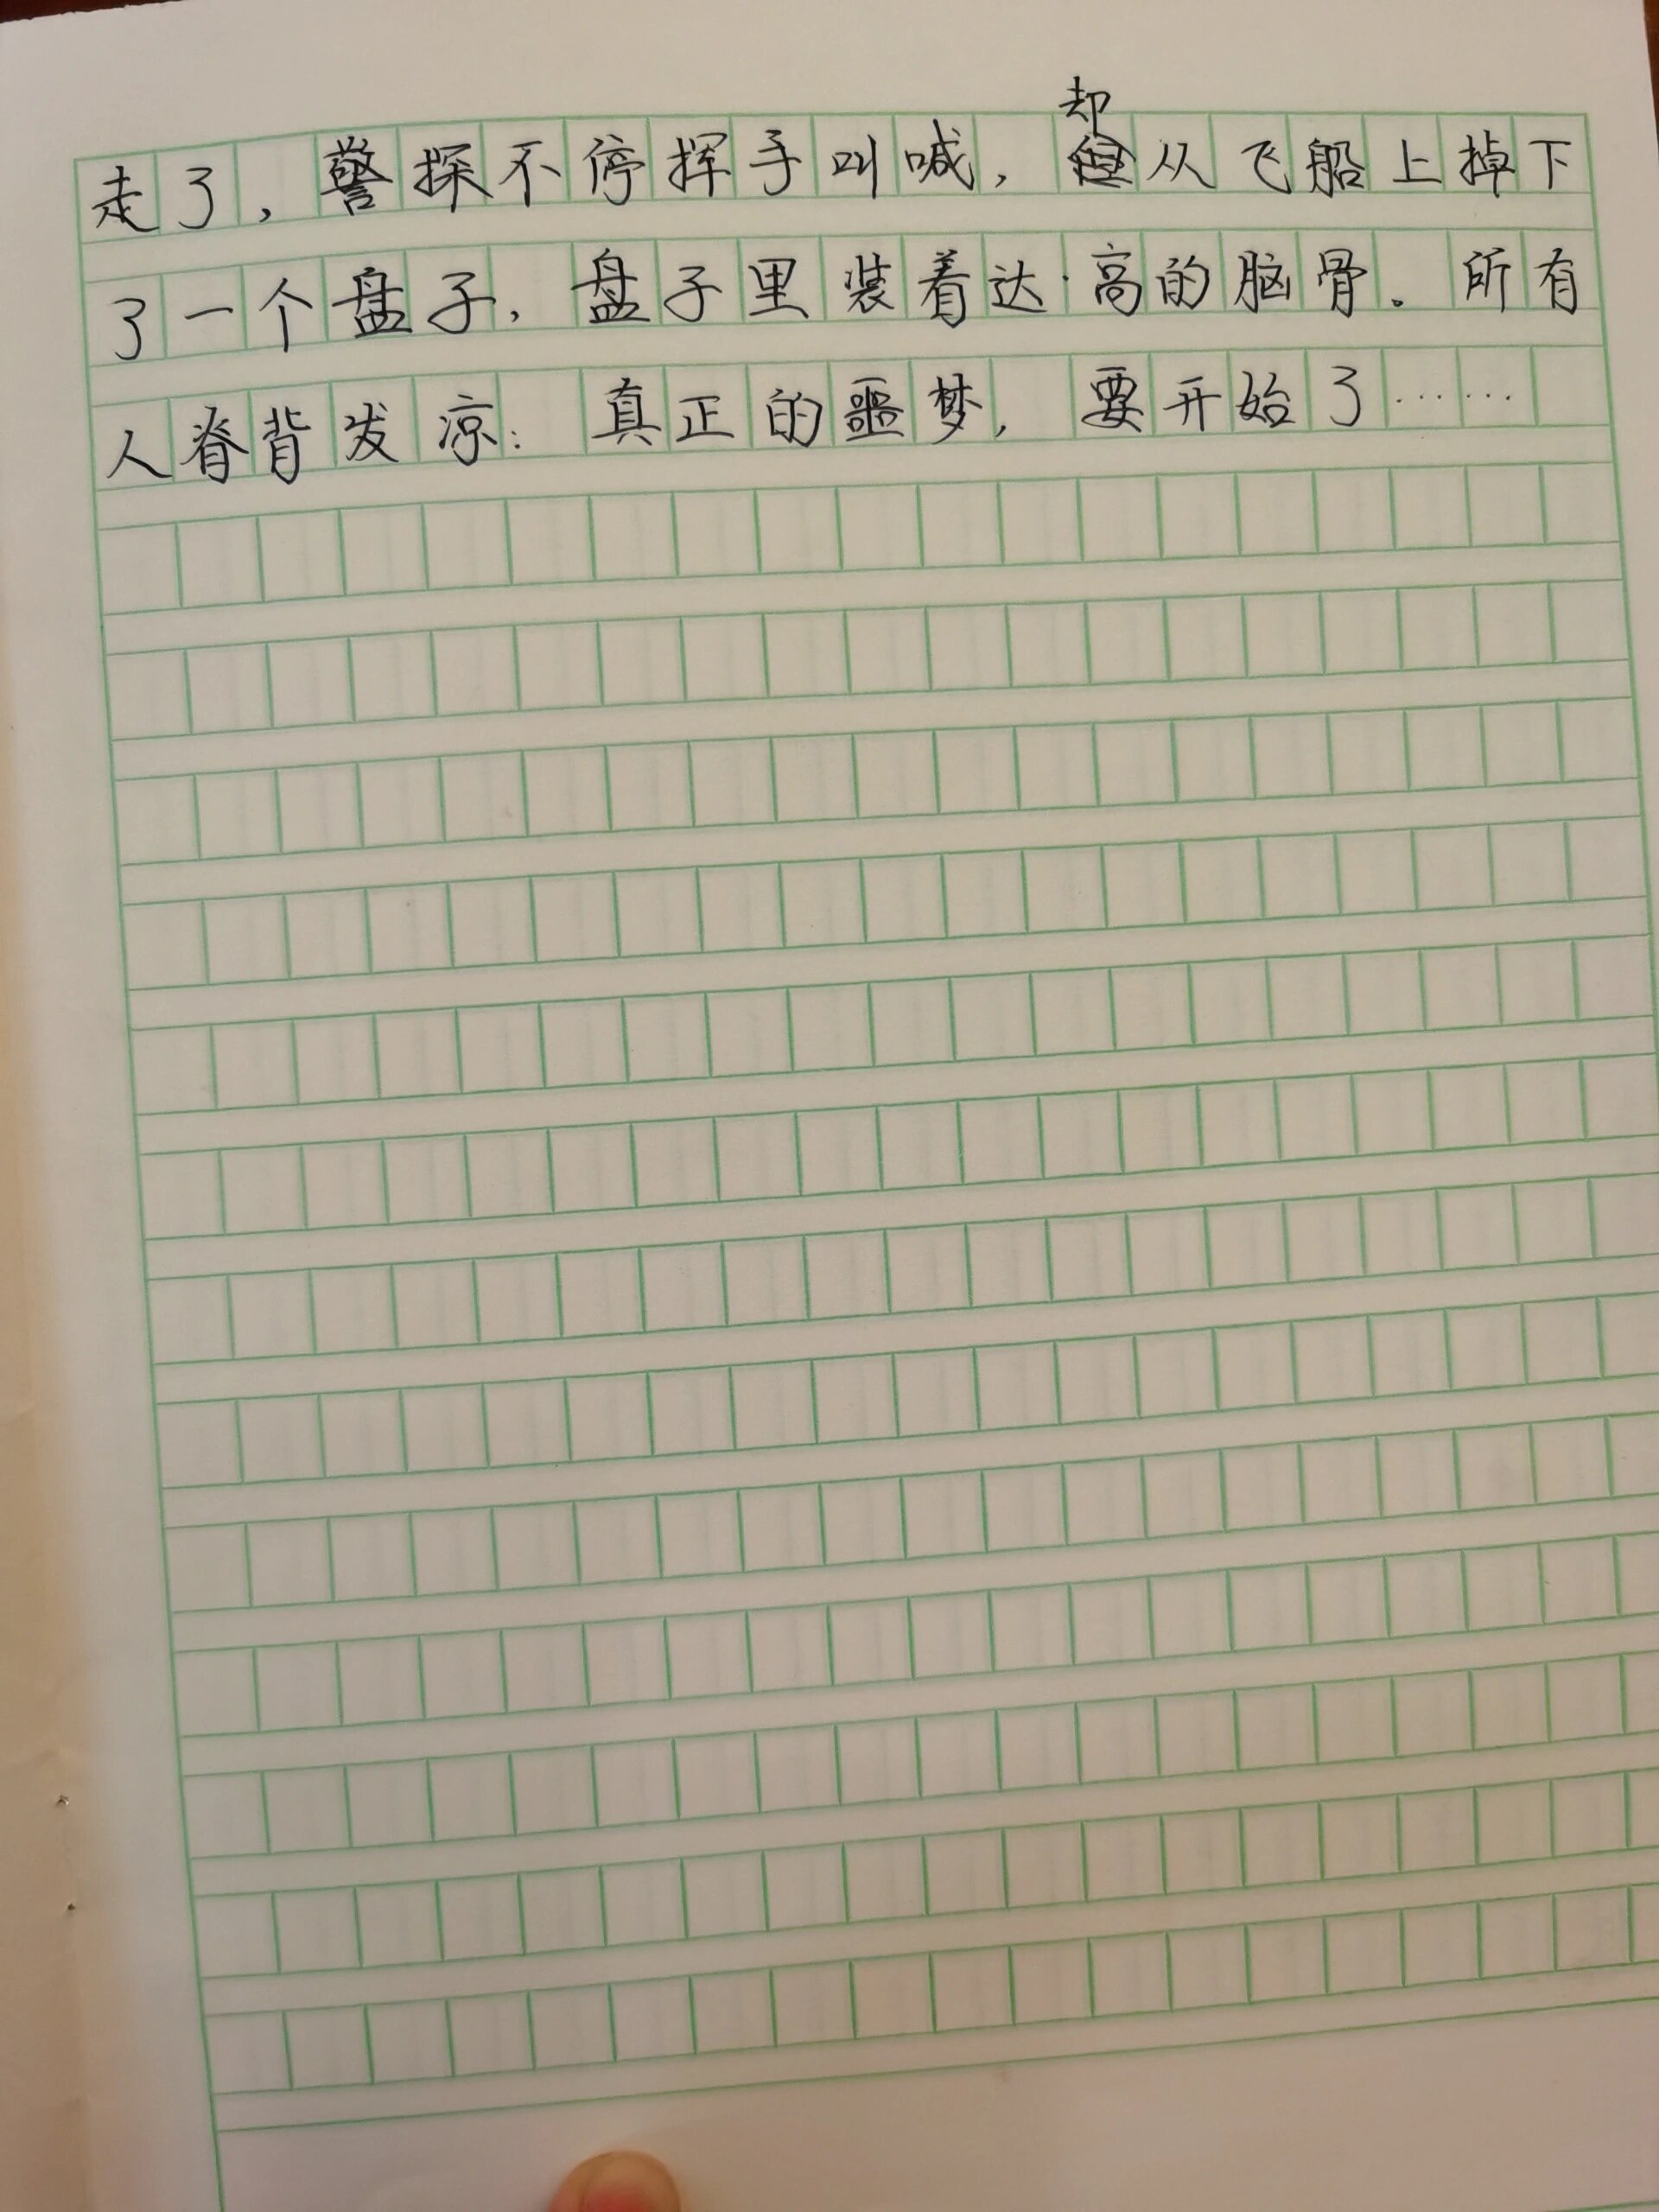 走了，警探不停挥手叫喊，却从飞船上掉下
了一个盘子，盘子里装着达·高的脑骨。所有
人脊背发凉：真正的噩梦，要开始了……